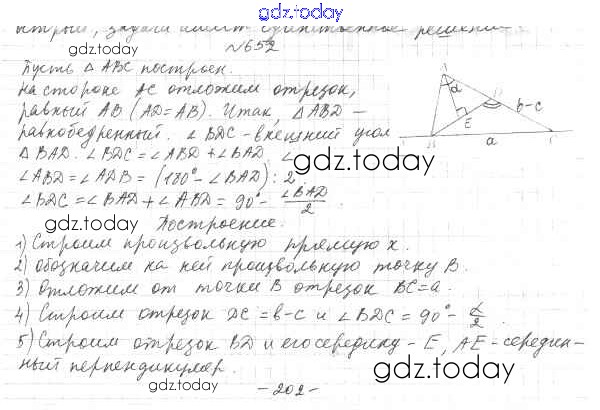 gdz.today
острый, задача имеет единственное решение.
gdz.today
№652
Пусть △ ABC построен.
на стороне AC отложим отрезок,
равный AB (AD=AB). Итак, △ ABD –
равнобедренный. ∠ BDC - внешний угол
△ BAD. ∠BDC = ∠ABD + ∠BAD. ∠
∠ABD = ∠ADB = (180° - ∠BAD) : 2.
∠BDC = ∠BAD + ∠ABD = 90° - ∠BAD/2.
α
E
b-c
a
gdz.today
gdz.today
Построение.
1) Строим произвольную прямую x.
2) обозначим на ней произвольную точку B.
3) Отложим от точки B отрезок BC=a.
4) Строим отрезок DC = b-c и ∠BDC = 90° - α/2.
5) Строим отрезок BD и его середину - E, AE - середин-
ный перпендикуляр.
gdz.today
gdz.today
gdz.today
- 202 -